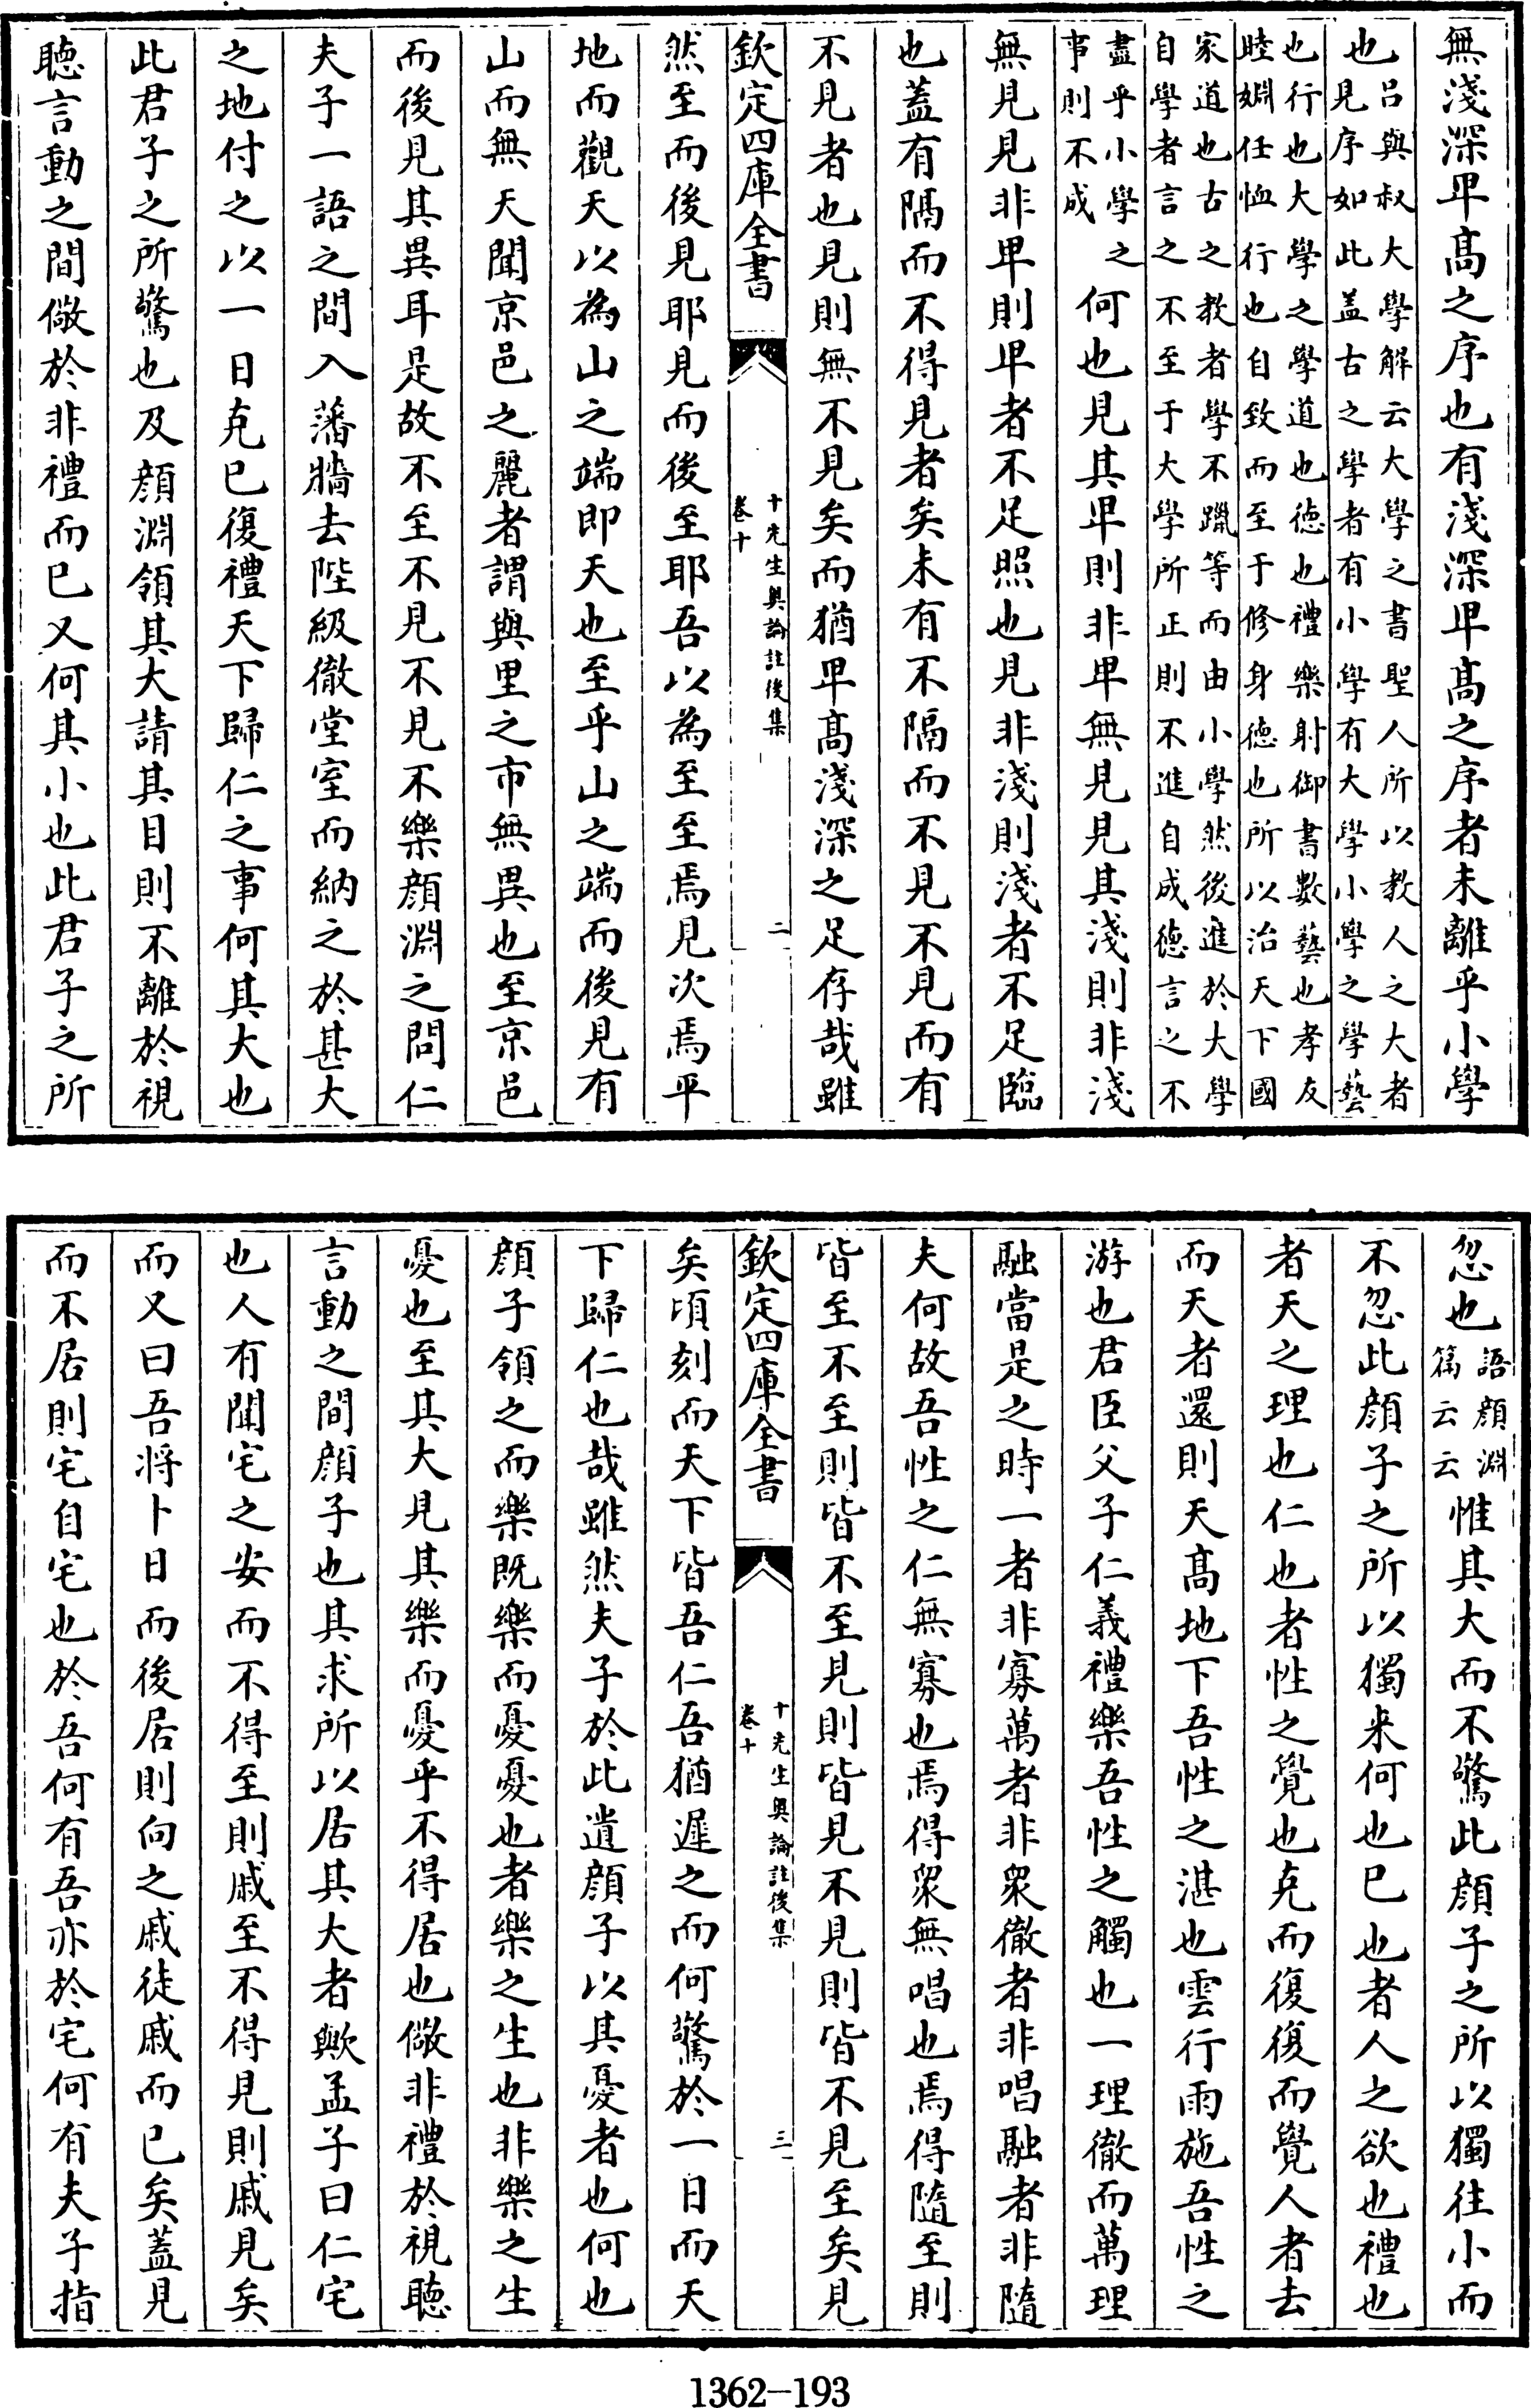 無淺深卑髙之序也有淺深卑髙之序者未離乎小學
也吕與叔大學解云大學之書聖人所以教人之大者
見序如此盖古之學者有小學有大學小學之學藝
也行也大學之學道也徳也禮樂射御書數藝也孝友
睦婣任恤行也自致而至于修身徳也所以治天下國
家道也古之教者學不躐等而由小學然後進於大學
自學者言之不至于大學所正則不進自成徳言之不
盡乎小學之
事則不成
何也見其卑則非卑無見見其淺則非淺
無見見非卑則卑者不足照也見非淺則淺者不足臨
也蓋有隔而不得見者矣未有不隔而不見不見而有
不見者也見則無不見矣而猶卑髙淺深之足存哉雖
欽定四庫全書
十先生奥論註後集
卷十
二
然至而後見耶見而後至耶吾以為至至焉見次焉平
地而觀天以為山之端即天也至乎山之端而後見有
山而無天聞京邑之麗者謂與里之市無異也至京邑
而後見其異耳是故不至不見不見不樂顔淵之問仁
夫子一語之間入藩牆去陛級徹堂室而納之於甚大
之地付之以一日克已復禮天下歸仁之事何其大也
此君子之所驚也及顔淵領其大請其目則不離於視
聽言動之間儆於非禮而已又何其小也此君子之所
忽也
語顔淵
篇云云
惟其大而不驚此顔子之所以獨往小而
不忽此顔子之所以獨来何也已也者人之欲也禮也
者天之理也仁也者性之覺也克而復復而覺人者去
而天者還則天髙地下吾性之湛也雲行雨施吾性之
游也君臣父子仁義禮樂吾性之觸也一理徹而萬理
融當是之時一者非寡萬者非衆徹者非唱融者非隨
夫何故吾性之仁無寡也焉得衆無唱也焉得隨至則
皆至不至則皆不至見則皆見不見則皆不見至矣見
欽定四庫全書
十先生奥論註後集
卷十
三
矣頃刻而天下皆吾仁吾猶遲之而何驚於一日而天
下歸仁也哉雖然夫子於此遺顔子以其憂者也何也
顔子領之而樂既樂而憂憂也者樂之生也非樂之生
憂也至其大見其樂而憂乎不得居也儆非禮於視聽
言動之間顔子也其求所以居其大者歟孟子曰仁宅
也人有聞宅之安而不得至則戚至不得見則戚見矣
而又曰吾將卜日而後居則向之戚徒戚而已矣蓋見
而不居則宅自宅也於吾何有吾亦於宅何有夫子指
1362-193